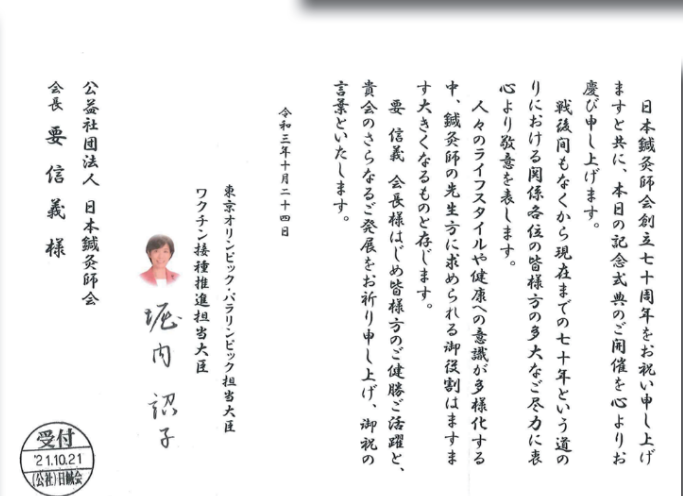 日本鍼灸師会創立七十周年をお祝い申し上げ
ますと共に、本日の記念式典のご開催を心よりお
慶び申し上げます。
戦後間もなくから現在までの七十年という道の
りにおける関係各位の皆様方の多大なご尽力に衷
心より敬意を表します。
人々のライフスタイルや健康への意識が多様化する
中、鍼灸師の先生方に求められる御役割はますま
す大きくなるものと存じます。
要 信義 会長様はじめ皆様方のご健勝ご活躍と、
貴会のさらなるご発展をお祈り申し上げ、御祝の
言葉といたします。
令和三年十月二十四日
東京オリンピック・パラリンピック担当大臣
ワクチン接種推進担当大臣
堀内 詔子
公益社団法人 日本鍼灸師会
会長 要 信義 様
受付
'21.10.21
(公社)日鍼会